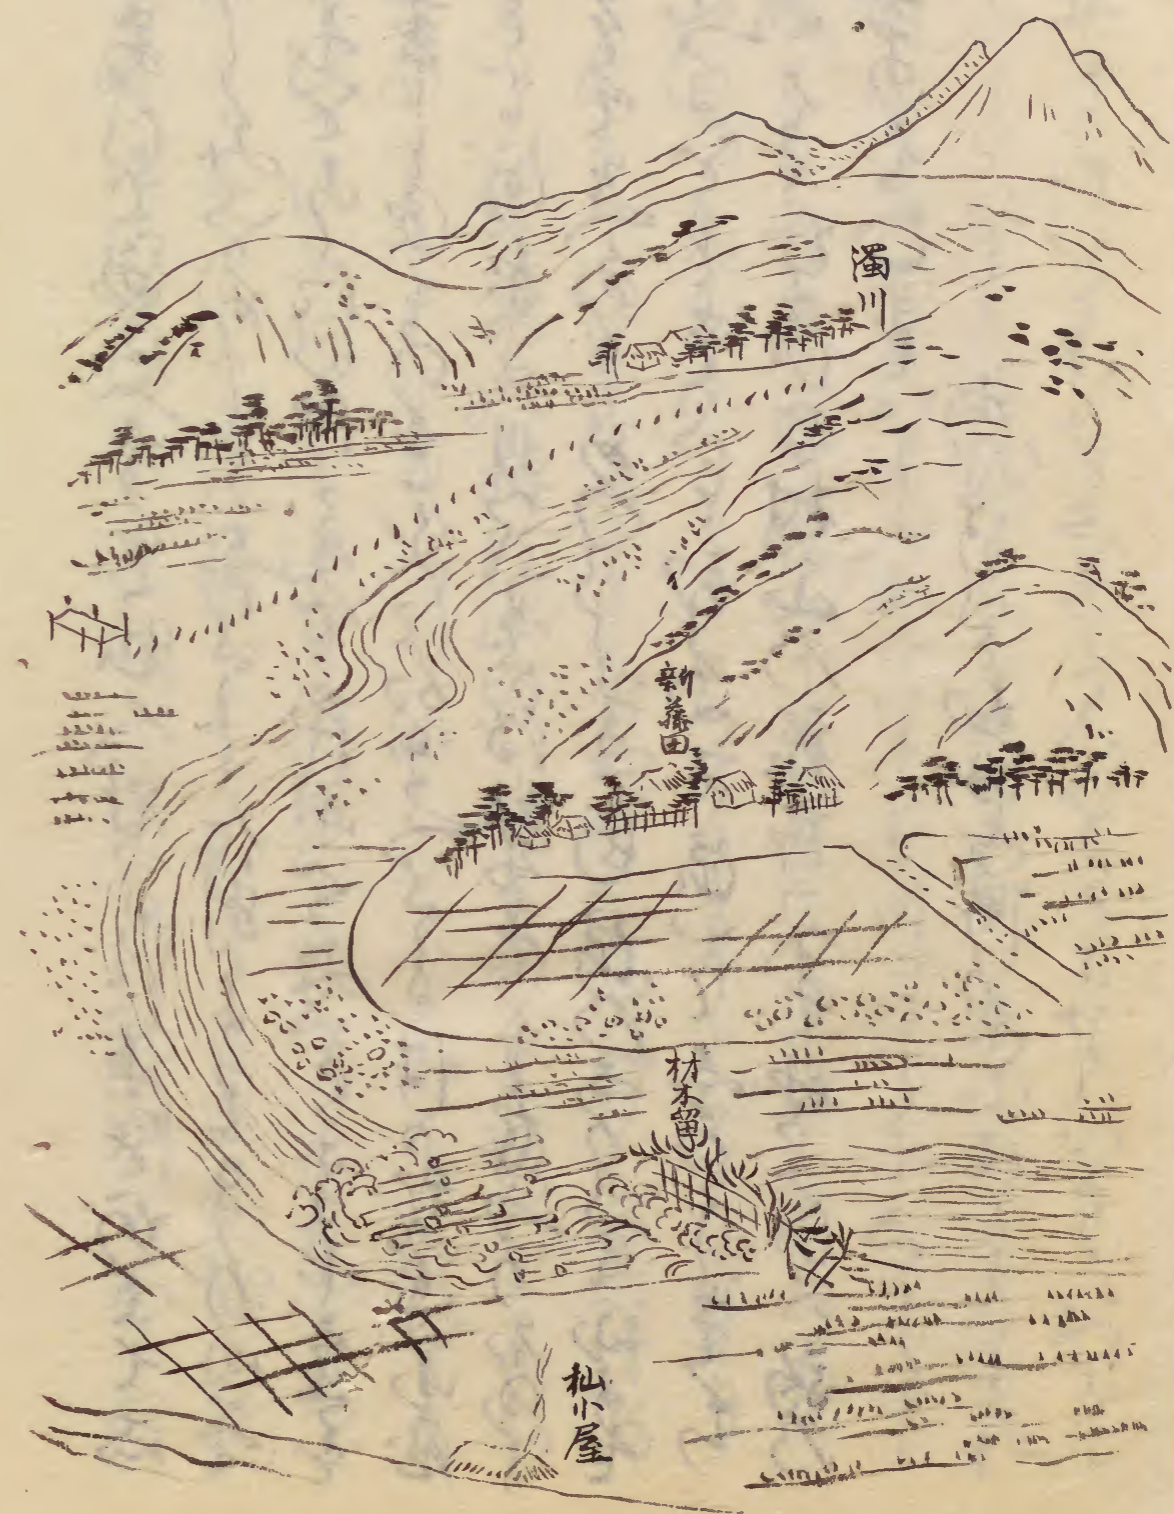 濁川
新藤田
材木留
杣小屋